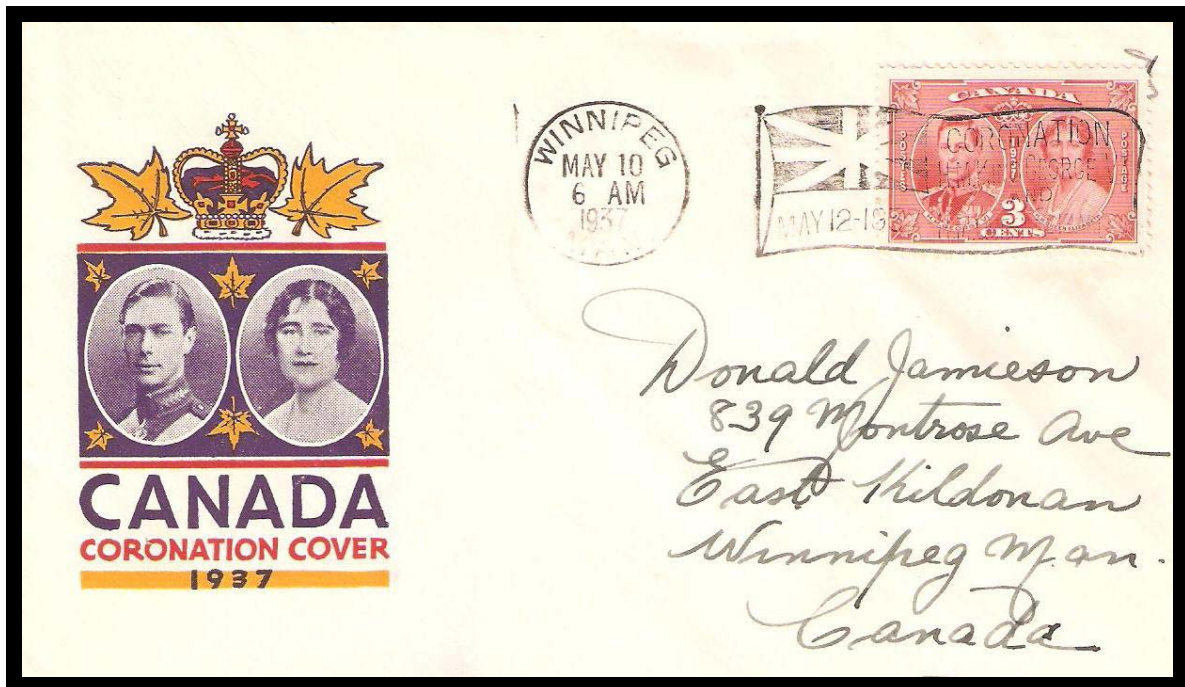 CANADA
CORONATION COVER
1937
WINNIPEG
MAY 10
6 AM
1937
CORONATION
GEORGE
MAY 12-193
CANADA
POSTES
1937
POSTAGE
3
CENTS
Donald Jamieson
839 Montrose Ave
East Kildonan
Winnipeg Man.
Canada